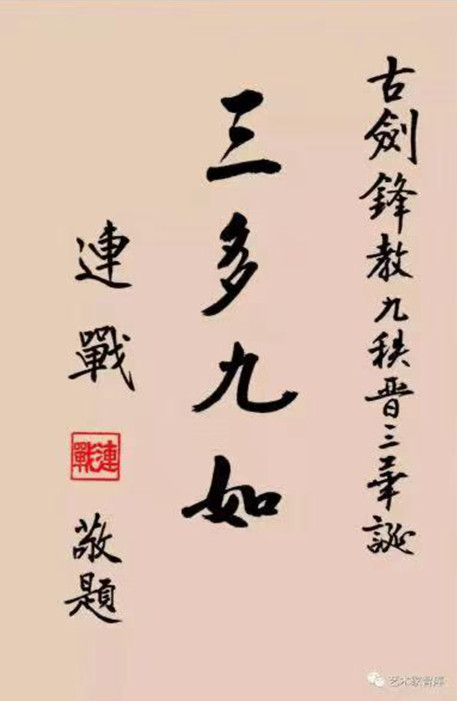 古劍鋒教九秩晋三華誕
三多九如
連戰
連戰
敬題
艺术家智库